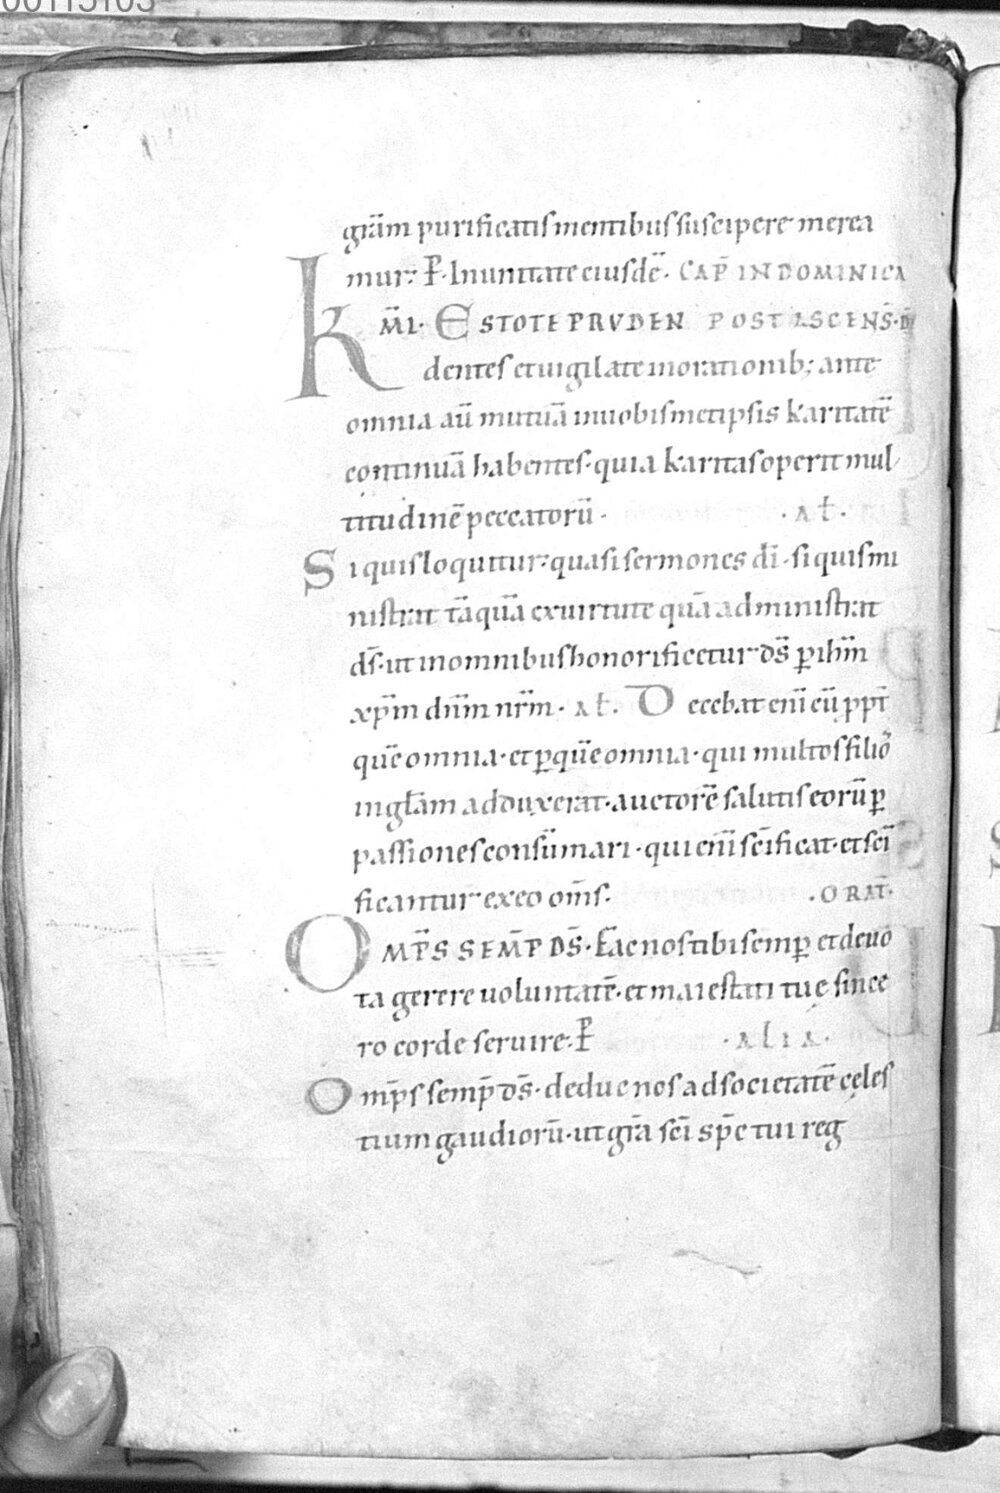 00115103
gr̄am purificatis mentibus suscipere merea
mur; P̄. In unitate eiusdē. CAP̄ IN DOMINICA
K M̄I. ESTOTE PRVDEN POST ASCENS̄. D̄N̄I
dentes et uigilate in orationib; ante
omnia aū mutuā in uobismetipsis karitatē
continuā habentes. quia karitas operit mul
titudinē peccatorū. .AL̄.
Si quis loquitur. quasi sermones dī. si quis mi
nistrat tāquā ex uirtute quā administrat
d̄s. ut in omnibus honorificetur d̄s p̱ ihm̄
xp̄m dn̄m nr̄m. AL̄. Decebat enī eū ppt̄
quē omnia. et p̱ quē omnia. qui multos filiō
in gl̄am adduxerat. auctorē salutis eorū p̱
passiones consūmari. qui enī sc̄ificat. et sc̄i
ficantur ex eo om̄s. .ORAT̄.
OMP̄S SEMP̄ D̄S. Fac nos tibi semp̱ et deuo
ta gerere uoluntatē. et maiestati tuę since
ro corde seruire. P̄ .ALIA.
Omp̄s semp̄ d̄s. deduc nos ad societatē cęles
tium gaudiorū. ut gr̄a sc̄i sp̄c tui reg